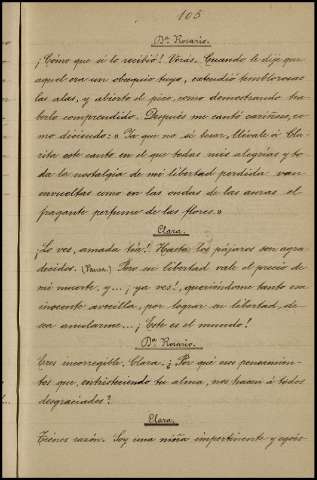 103
Dª Rosario.
¡Cómo que si lo recibió! Verás. Cuando le dije que
aquel era un obsequio tuyo, extendió temblorosas
las alas, y abierto el pico, como demostrando ha-
berlo comprendido. Después me cantó cariñoso, co-
mo diciendo: "Ya que no sé besar, llévale á Cla-
rita este canto en el que todas mis alegrías y to-
da la nostalgia de mi libertad perdida van
envueltas como en las ondas de las auras el
fragante perfume de las flores."
Clara.
¡Lo ves, amada tía! Hasta los pájaros son agra-
decidos. (Pausa.) Pero su libertad vale el precio de
mi muerte, y...; ya ves!, queriéndome tanto esa
inocente avecilla, por lograr su libertad, de-
sea amularme...; Este es el mundo!
Dª Rosario.
Eres incorregible, Clara. ¿Por qué esos pensamien-
tos que, entristeciendo tu alma, nos hacen á todos
desgraciados?
Clara.
Tienes razón. Soy una niña impertinente y egoís-